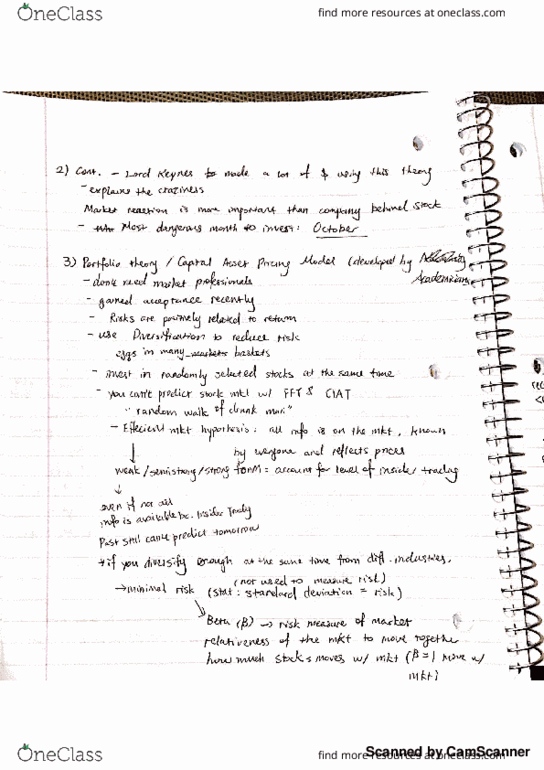 OneClass
find more resources at oneclass.com
2) Cont. - Lord Keynes to made a lot of $ using this theory
- explains the craziness
Market reaction is more important than company behind stock
- Most dangerous month to invest: October
3) Portfolio theory / Capital Asset Pricing Model (developed by
Academicians
- don't need market profesionals
- gained acceptance recently
- Risks are postively related to return
- use Diversification to reduce risk
eggs in many baskets
- invest in randomly selected stocks at the same time
- you can't predict stock mkt w/ FFT &
"random walk of drunk man"
- Effecient mkt hypothesis: all info is on the mkt, known
by everyone and reflects prices
weak/semistrong/strong form = account for level of insider trading
even if not all
info is available bc. Insider Trady
Past still can't predict tomorrow
if you diversify enough at the same time from diff. industries.
→ minimal risk (not used to measure risk)
(stat: standard deviation = risk)
Beta (β) → risk measure of market
relativeness of the mkt to move together
how much stocks moves w/ mkt (β=1 move w/
mkt)
OneClass
find more resources at oneclass.com
Scanned by CamScanner